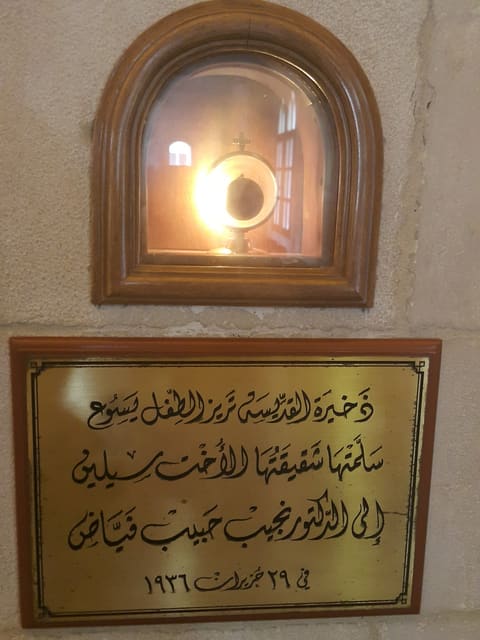 ذَخيرَة القدِّيسَة تَريز الطِفْل يَسُوع
سَلَّمَتْهَا شَقيقَتُهَا الأُخْت سِيلين
إلى الدّكتور نجيب حَبيب فَيَّاض
في ٢٩ حُزيران ١٩٣٦